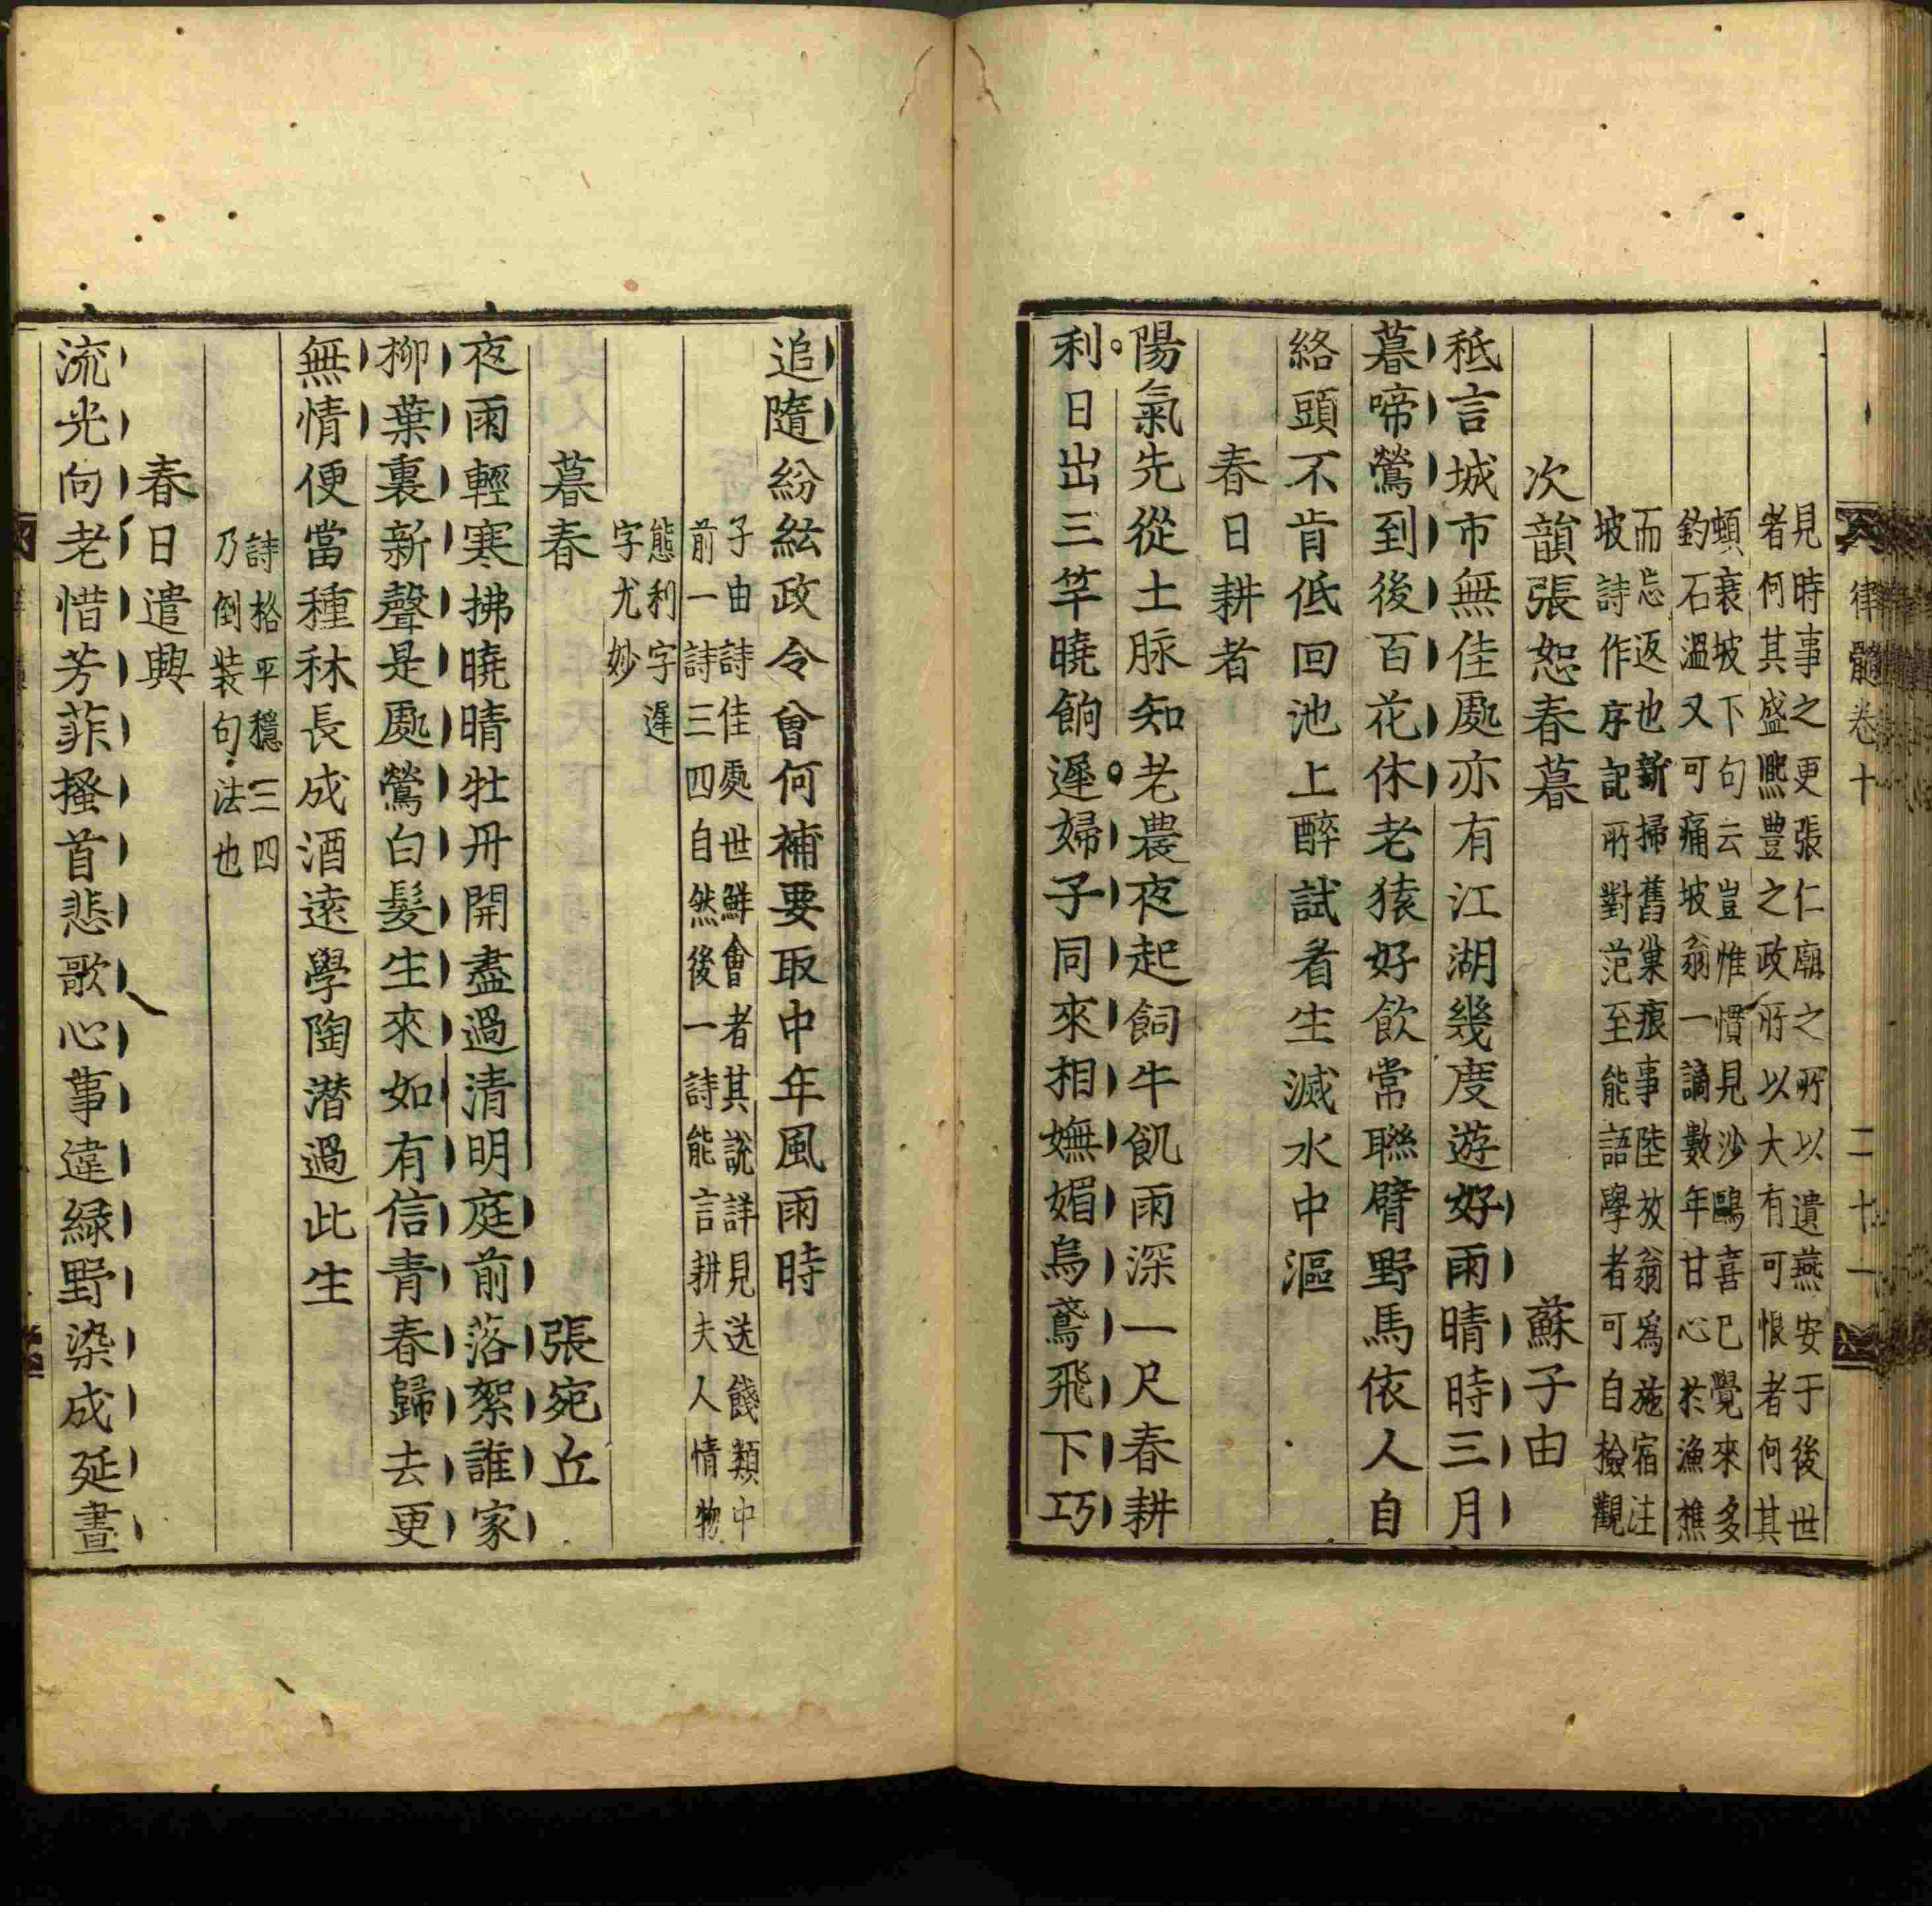 律髓卷十　二十一
見時事之更張仁廟之所以遺燕安于後世
者何其盛熈豊之政所以大有可恨者何其
蝢衰坡下句云豈惟慣見沙鷗喜已覺來多
釣石溫又可痛坡翁一謫數年甘心於漁樵
而忘返也新掃舊巢痕事陸放翁爲施宿注
坡詩作序記所對范至能語學者可自撿觀
次韻張恕春暮　蘇子由
秪言城市無佳處亦有江湖幾度遊好雨晴時三月
暮啼鶯到後百花休老猿好飲常聯臂野馬依人自
絡頭不肯低回池上醉試看生滅水中漚
春日耕者
陽氣先從土脉知老農夜起飼牛飢雨深一尺春耕
利日出三竿曉餉遲婦子同來相嫵媚烏鳶飛下巧
追隨紛紜政令曾何補要取中年風雨時
子由詩佳處世鮮會者其說詳見送餞類中
前一詩三四自然後一詩能言耕夫人情物
態利字遲
字尤妙
暮春　張宛丘
夜雨輕寒拂曉晴牡丹開盡過清明庭前落絮誰家
柳葉裏新聲是處鶯白髮生來如有信青春歸去更
無情便當種秫長成酒遠學陶潛過此生
詩格平穩三四
乃倒裝句法也
春日遣興
流光向老惜芳菲搔首悲歌心事違緑野染成延晝